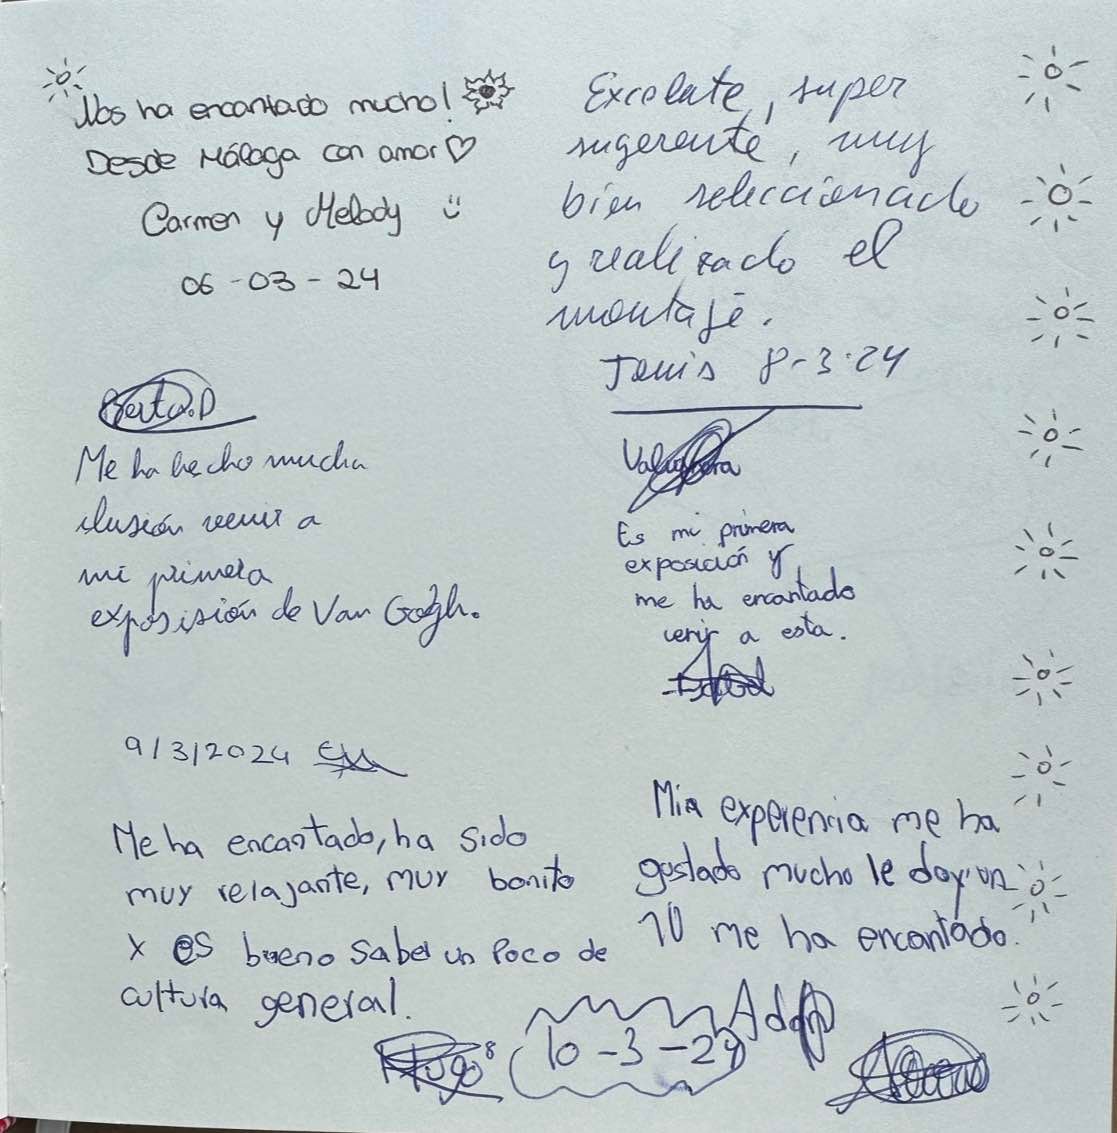 Nos ha encantado mucho!
Desde Málaga con amor
Carmen y Melody
06-03-24
Excelate, super
sugerente, muy
bien seleccionado
y realizado el
montaje.
8-3-24
Berta.D
Me ha hecho mucha
ilusión venir a
mi primera
exposisión de Van Gogh.
Es mi primera
exposición y
me ha encantado
venir a esta.
9/3/2024
Me ha encantado, ha sido
muy relajante, muy bonito
x es bueno saber un poco de
cultura general.
Hugo
Mia experencia me ha
gustado mucho le doy un
10 me ha encantado.
10-3-24